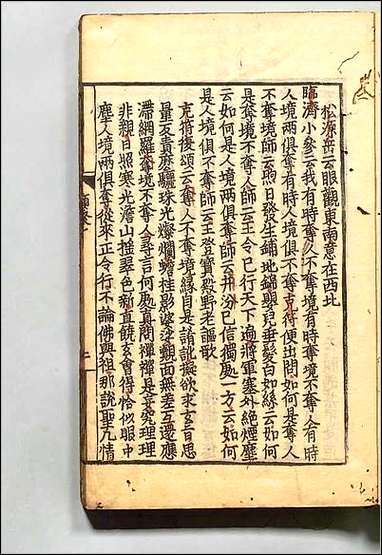 松源岳云眼觀東南意在西北
臨濟小參云我有時奪人不奪境有時奪境不奪人有時
人境兩俱奪有時人境俱不奪克符便出問如何是奪人
不奪境師云煦日發生鋪地錦嬰兒垂髮白如絲云如何
是奪境不奪人師云王令已行天下遍將軍塞外絕煙塵
云如何是人境兩俱奪師云并汾已信獨處一方云如何
是人境俱不奪師云王登寶殿野老謳歌
克符後頌云奪人不奪境緣自是誵訛擬欲求玄旨思
量反責麼驪珠光燦爛蟾桂影婆娑覿面無差互還應
滯網羅奪境不奪人尋言何處真問禪禪是妄究理理
非親日照寒光澹山搖翠色新直饒玄會得恰似眼中
塵人境兩俱奪從來正令行不論佛與祖那說聖凡情
二